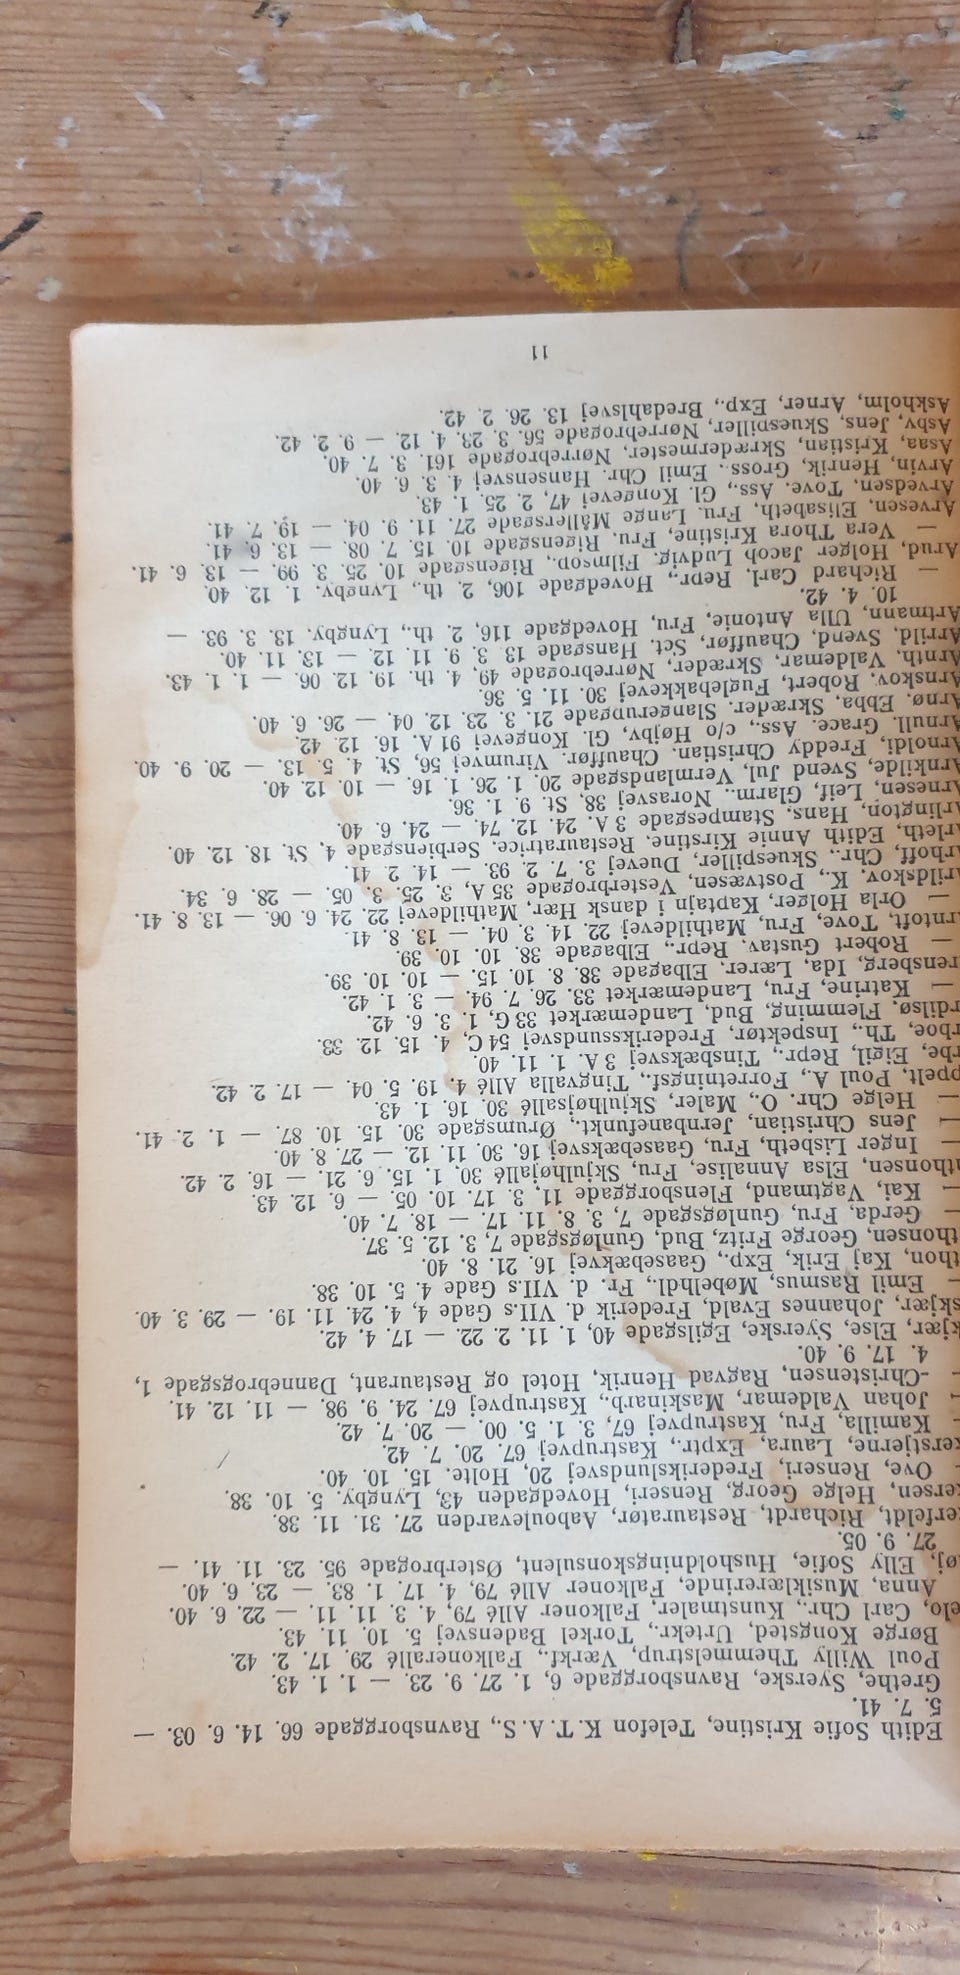 Edith Sofie Kristine, Telefon K.T.A.S., Ravnsborggade 66. 14. 6. 03. —
5. 7. 41.
Grethe, Syerske, Ravnsborggade 6, 1. 27. 9. 23. — 1. 1. 43.
Poul Willy Themmelstrup, Værkf., Falkonerallé 29. 17. 2. 42.
Børge Kongsted, Urtekr., Torkel Badensvej 5. 10. 11. 43.
elo, Carl Chr., Kunstmaler, Falkoner Allé 79, 4. 3. 11. 11. — 22. 6. 40.
Anna, Musiklærerinde, Falkoner Allé 79, 4. 17. 1. 83. — 23. 6. 40.
øj, Elly Sofie, Husholdningskonsulent, Østerbrogade 95. 23. 11. 41. —
27. 9. 05.
erfeldt, Richardt, Restauratør, Aaboulevarden 27. 31. 11. 38.
ersen, Helge Georg, Renseri, Hovedgaden 43, Lyngby. 5. 10. 38.
— Ove, Renseri, Frederikslundsvej 20, Holte. 15. 10. 40.
erstjerne, Laura, Exptr., Kastrupvej 67. 20. 7. 42.
— Kamilla, Fru, Kastrupvej 67, 3. 1. 5. 00. — 20. 7. 42.
— Johan Valdemar, Maskinarb., Kastrupvej 67. 24. 9. 98. — 11. 12. 41.
— -Christensen, Ragvad Henrik, Hotel og Restaurant, Dannebroggsgade 1,
4. 17. 9. 40.
kjær, Else, Syerske, Egilsgade 40, 1. 11. 2. 22. — 17. 4. 42.
skjær, Johannes Evald, Frederik d. VII.s Gade 4, 4. 24. 11. 19. — 29. 3. 40.
— Emil Rasmus, Møbelhdl., Fr. d. VII.s Gade 4. 5. 10. 38.
thon, Kaj Erik, Exp., Gaasebækvej 16. 21. 8. 40.
thonsen, George Fritz, Bud, Gunløgsgade 7, 3. 12. 5. 37.
— Gerda, Fru, Gunløgsgade 7, 3. 8. 11. 17. — 18. 7. 40.
— Kai, Vagtmand, Flensborggade 11, 3. 17. 10. 05. — 6. 12. 43.
nthonsen, Elsa Annalise, Fru, Skjulhøjallé 30, 1. 15. 6. 21. — 16. 2. 42.
— Inger Lisbeth, Fru, Gaasebæksvej 16. 30. 11. 12. — 27. 8. 40.
— Jens Christian, Jernbanefunkt., Ørumsgade 30. 15. 10. 87. — 1. 2. 41.
— Helge Chr. O., Maler, Skjulhøjsallé 30. 16. 1. 43.
ppelt, Poul A., Forretningsf., Tingvalla Allé 4. 19. 5. 04. — 17. 2. 42.
rbe, Eigil, Repr., Tinsbæksvej 3 A. 1. 11. 40.
rboe, Th., Inspektør, Frederikssundsvej 54 C, 4. 15. 12. 33.
rdilsø, Flemming, Bud, Landemærket 33 G, 1. 3. 6. 42.
— Katrine, Fru, Landemærket 33. 26. 7. 94. — 3. 1. 42.
rensberg, Ida, Lærer, Elbagade 38. 8. 10. 15. — 10. 10. 39.
— Robert Gustav, Repr., Elbagade 38. 10. 10. 39.
rntoft, Tove, Fru, Mathildevej 22. 14. 3. 04. — 13. 8. 41.
— Orla Holger, Kaptajn i dansk Hær, Mathildevej 22. 24. 6. 06. — 13. 8. 41.
rildskov, K., Postvæsen, Vesterbrogade 35 A, 3. 25. 3. 05. — 28. 6. 34.
rhoff, Chr., Skuespiller, Duevej 3. 7. 2. 93. — 14. 2. 41.
rleth, Edith Annie Kirstine, Restauratrice, Serbiensgade 4, St. 18. 12. 40.
Arlington, Hans, Stampesgade 3 A. 24. 12. 74. — 24. 6. 40.
Arnesen, Leif, Glarm., Norasvej 38, St. 9. 1. 36.
Arnkilde, Svend Jul, Vermlandsgade 20, 1. 26. 1. 16. — 10. 12. 40.
Arnoldi, Freddy Christian, Chauffør, Virumvej 56, St. 4. 5. 13. — 20. 9. 40.
Arnull, Grace, Ass., c/o Højby, Gl. Kongevej 91 A. 16. 12. 42.
Arnø, Ebba, Skræder, Slangerupgade 21, 3. 23. 12. 04. — 26. 6. 40.
Arnskov, Robert, Fuglebakkevej 30. 11. 5. 36.
Arnth, Valdemar, Skræder, Nørrebrogade 49, 4. th. 19. 12. 06. — 1. 1. 43.
Arrild, Svend, Chauffør, Sct. Hansgade 13, 3. 9. 11. 12. — 13. 11. 40.
Artmann, Ulla Antonie, Fru, Hovedgade 116, 2. th., Lyngby. 13. 3. 93. —
10. 4. 42.
— Richard Carl, Repr., Hovedgade 106, 2. th., Lyngby. 1. 12. 40.
Arud, Holger Jacob Ludvig, Filmsop., Rigensgade 10. 25. 3. 99. — 13. 6. 41.
— Vera Thora Kristine, Fru, Rigensgade 10. 15. 7. 08. — 13. 6. 41.
Arvesen, Elisabeth, Fru, Lange Müllersgade 27. 11. 9. 04. — 19. 7. 41.
Arvedsen, Tove, Ass., Gl. Kongevej 47, 2. 25. 1. 43.
Arvin, Henrik, Gross., Emil Chr. Hansensvej 4. 3. 6. 40.
Asaa, Kristian, Skrædermester, Nørrebrogade 161. 3. 7. 40.
Asby, Jens, Skuespiller, Nørrebrogade 56, 3. 23. 4. 12. — 9. 2. 42.
Askholm, Arner, Exp., Bredahlsvej 13. 26. 2. 42.
11